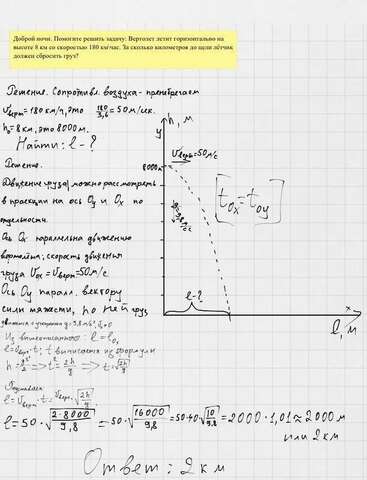 Доброй ночи. Помогите решить задачу: Вертолет летит горизонтально на
высоте 8 км со скоростью 180 км/час. За сколько километров до цели лётчик
должен сбросить груз?
Решение. Сопротивл. воздуха - пренебрегаем
Vверт=180 км/ч, это 180/3,6=50 м/сек.
h=8 км, это 8000 м.
Найти: l-?
Решение.
Движение груза можно рассмотреть
в проекции на ось Oy и Ox по
отдельности.
Ось Ox параллельна движению
вертолёта; скорость движения
груза Vox=Vверт=50м/с
Ось Oy паралл. вектору
силы тяжести, по ней груз
движется с ускорением g=9,8 м/с²,
Из вышеописанного: l=l₀,
l=Vверт·t; t вычисляется из формулы
h=gt²/2 ⟹ t²=2h/g ⟹ t=√2h/g
Получаем:
l=Vверт·t=Vверт·√2h/g
l=50·√2·8000/9,8=50·√16000/9,8=50·40√10/9,8=2000·1,01≈2000 м
или 2 км
Ответ: 2 км
h, м
y
8000м
Vверт=50м/с
g=9,8 м/с²
tox=toy
l-?
x
l, м